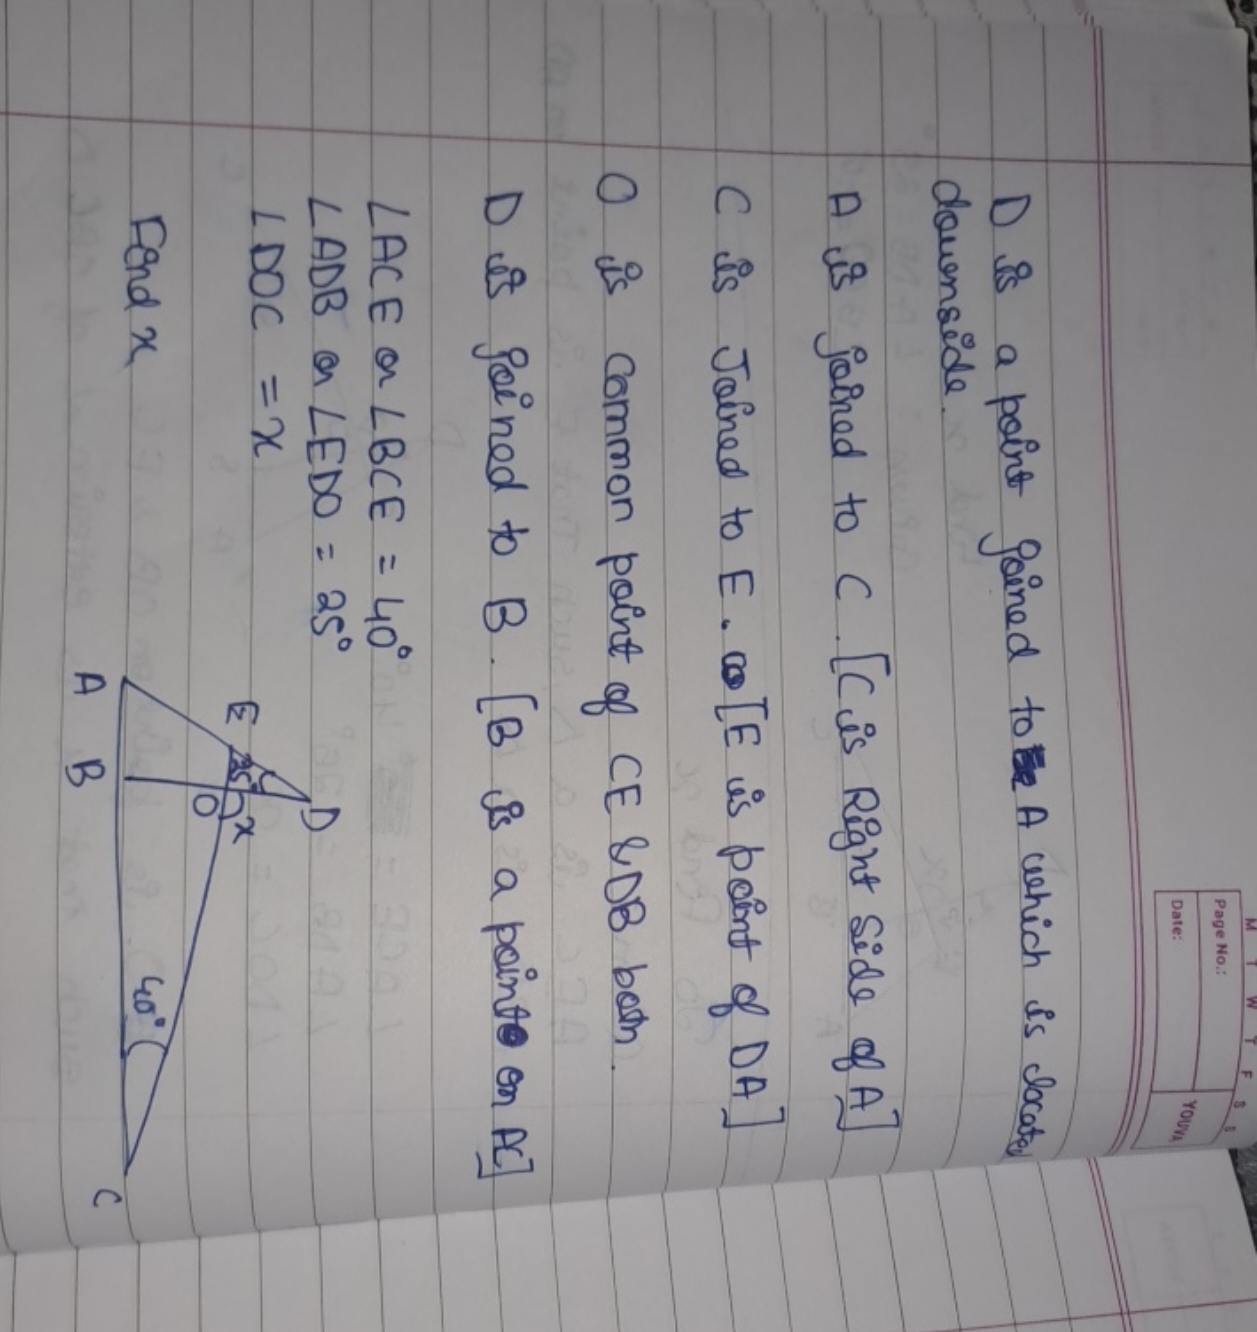 M T W T F S S
Page No.:
Date:
YOUVA
D is a point joined to A which is located
downside.
A is joined to C. [C is Right side of A]
C is Joined to E. [E is point of DA]
O is common point of CE & DB both.
D is joined to B. [B is a point on AC]
∠ACE or ∠BCE = 40°
∠ADB or ∠EDO = 25°
∠DOC = x
Find x
D
E
25°
x
O
40°
A
B
C